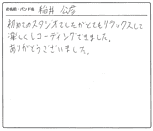 お名前・バンド名 稲井 公彦
初めてのスタジオでしたがとてもリラックスして
楽しくレコーディングできました。
ありがとうございました。